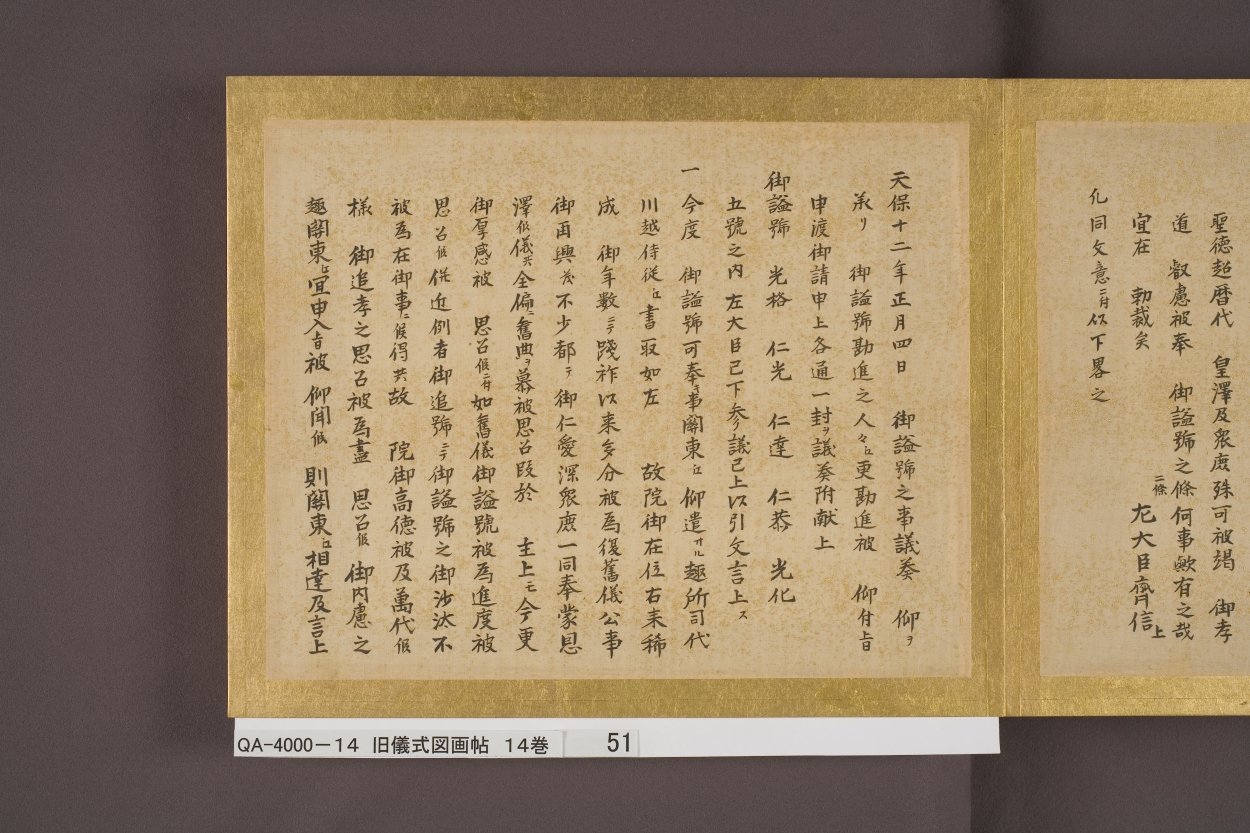 聖徳超暦代　皇澤及衆庶殊可被竭　御孝
道　叡慮被奉　御謚號之條何事歟有之哉
宜在　勅裁矣
二條
左大臣齊信上
化同文意ニ付以下畧之
天保十二年正月四日　御謚號之事議奏　仰ヲ
承リ　御謚號勘進之人々江更勘進被　仰付旨
申渡御請申上各通一封ヲ議奏附献上
御謚號　光格　仁光　仁達　仁恭　光化
五號之内左大臣已下参議已上以引文言上ス
一今度　御謚號可奉ヰ事關東江仰遣サル趣所司代
川越侍従江書取如左　故院御在位右来稀
成　御年數ニテ踐祚以来多分被為復舊儀公事
御再興茂不少都テ御仁愛深衆庶一同奉蒙恩
澤候儀共全偏ニ舊典ヲ慕被思召段於　主上モ今更
御厚感被　思召候ニ付如舊儀御謚號被為進度被
思召候併近例者御追號ニテ御謚號之御沙汰不
被為在御事ニ候得共故　院御高徳被及萬代候
様　御追孝之思召被為盡　思召候　御内慮之
趣關東江宜申入旨被　仰聞候　則關東江相達及言上
QA-4000－14　旧儀式図画帖　14巻　51